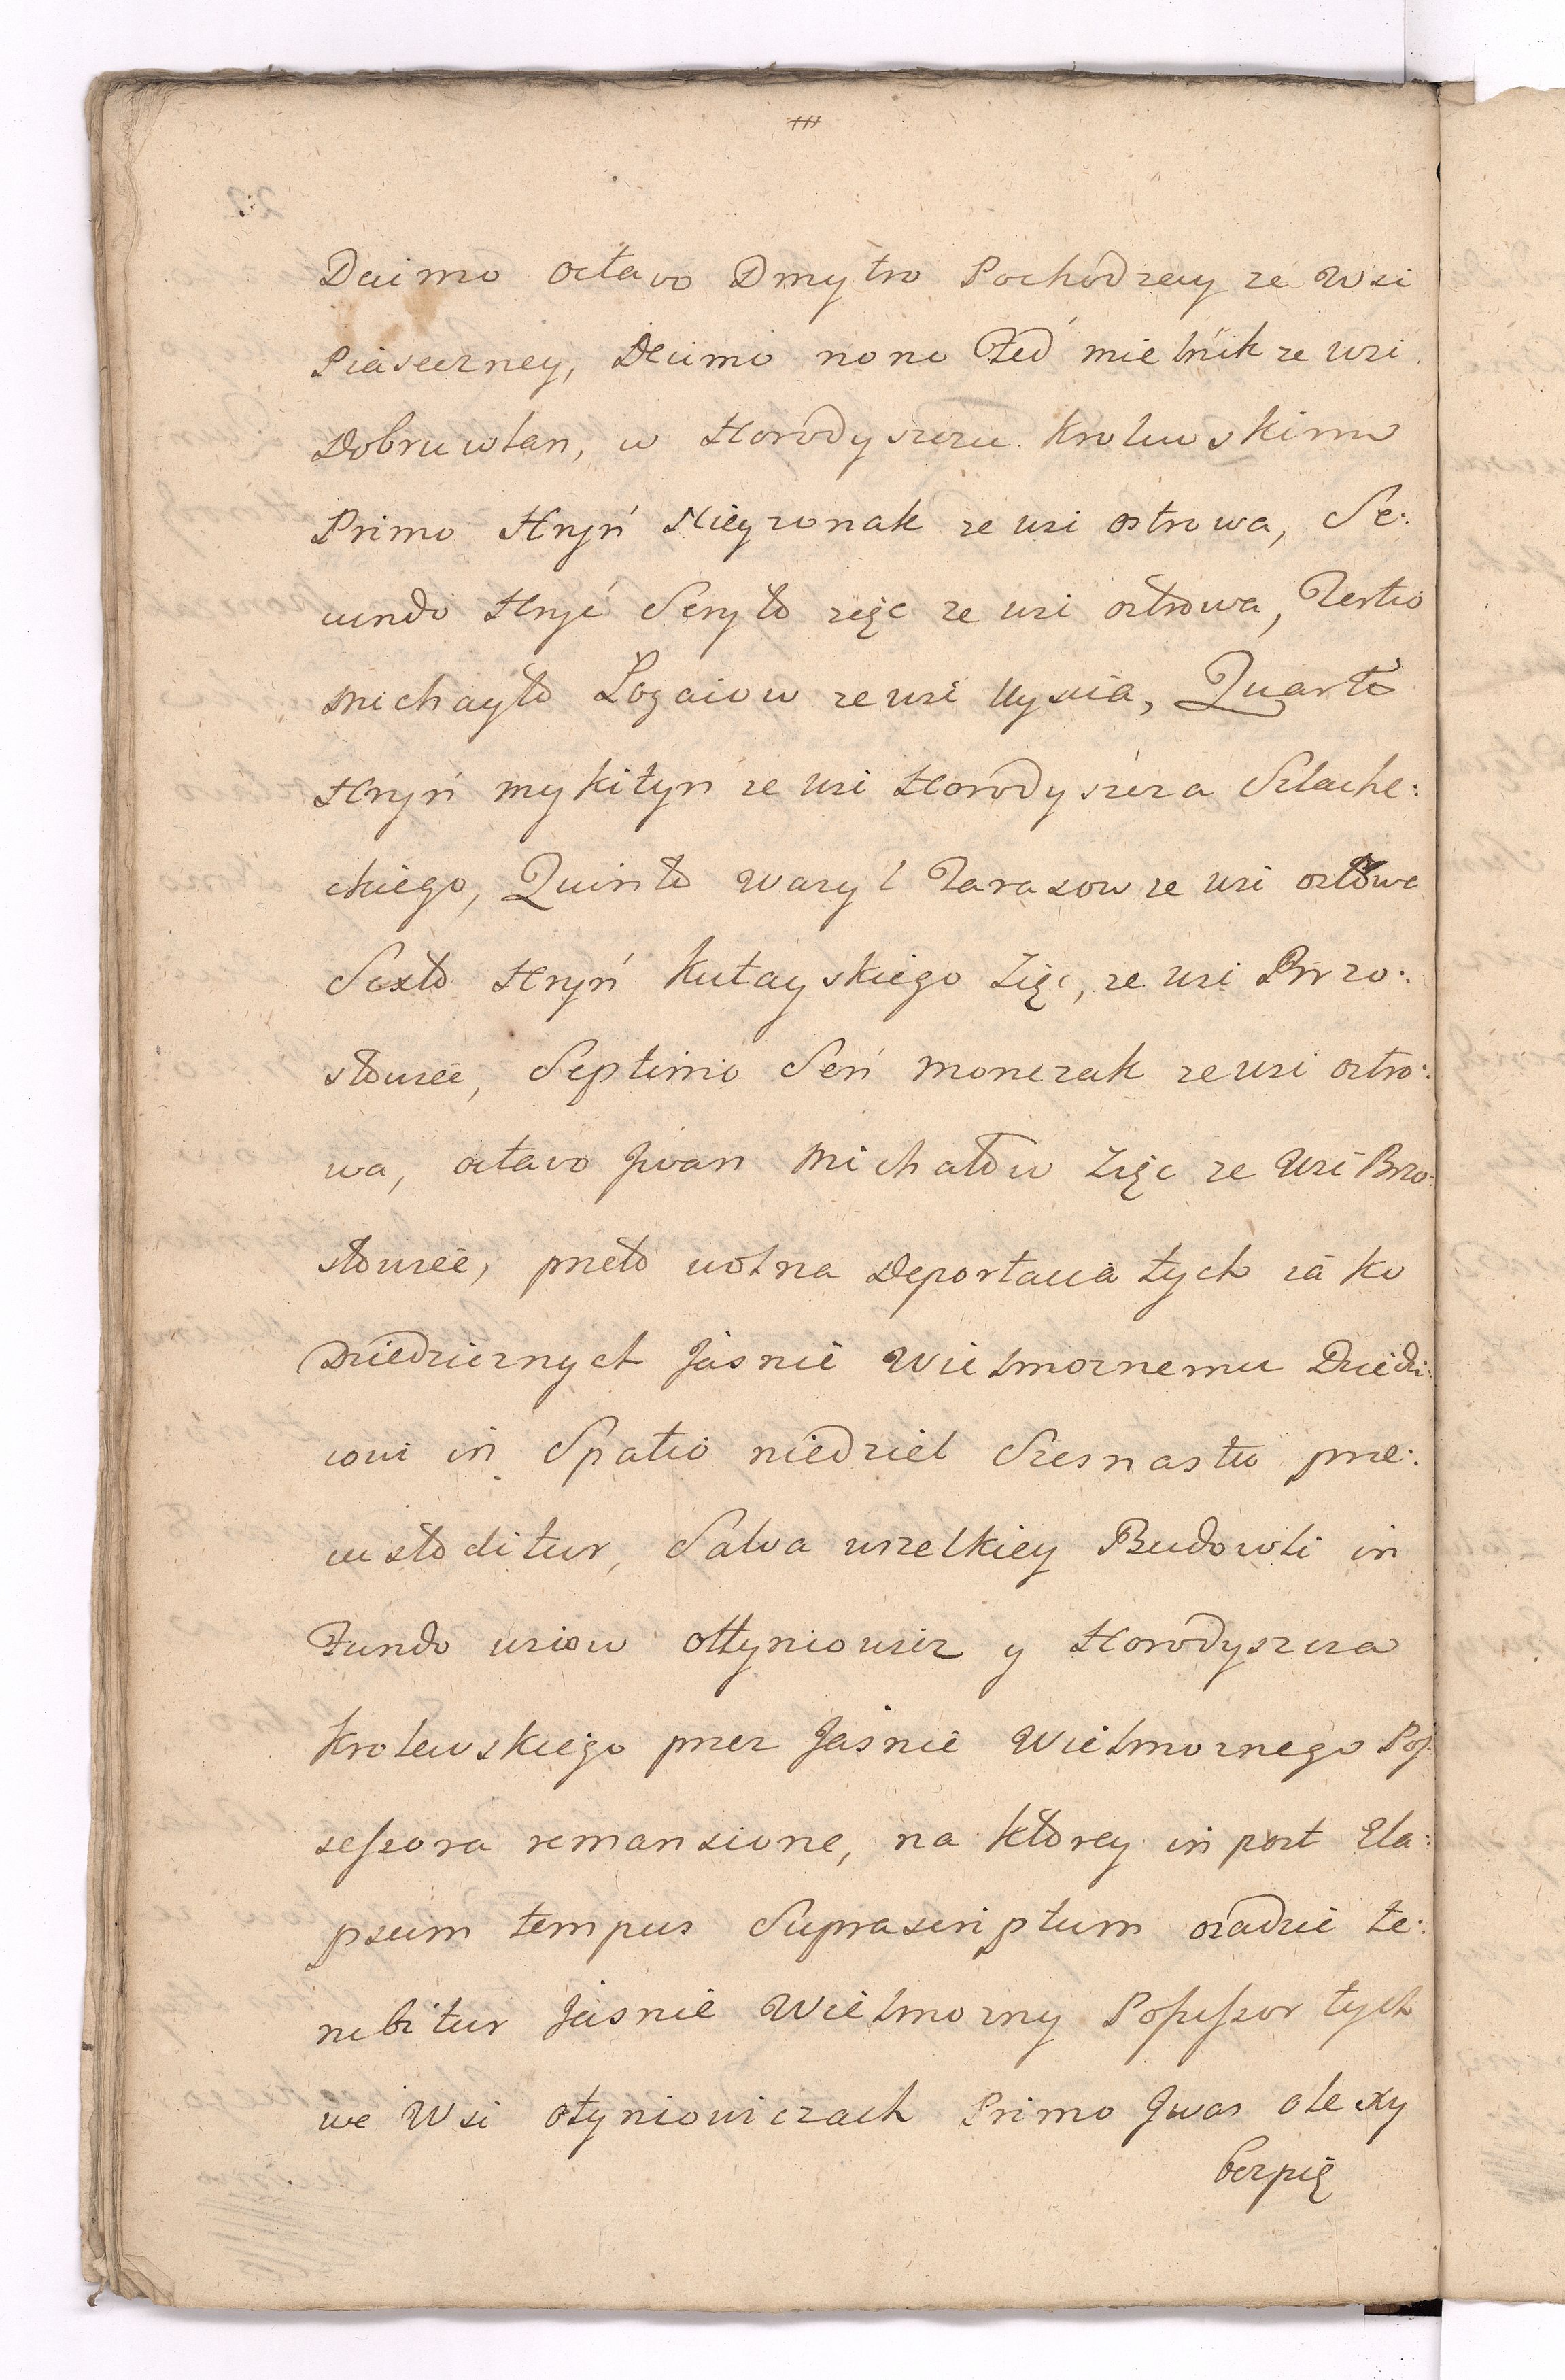 Decimo octavo Dmytro Pochodzcy ze Wsi
Piaseczney, Decimo nono Fed mielnik ze wsi
Dobrowlan, w Horodyszczu Krolewskim
Primo Hryń ze wsi ostrowa, Se:
cundo Hryć Seryło zięc ze wsi ostrowa, Tertio
Michayło Łozaiow ze wsi Uyscia, Quarto
Hryń mykityn ze wsi Horodyszcza Szlache:
ckiego, Quinto Wasyl Tarasow ze wsi ostrowa
Sexto Hryń Kutayskiego Zięc, ze wsi Brzo:
stowiec, Septimo Seń Monczak ze wsi ostro:
wa, octavo Jwan Michałow Zięc ze Wsi Brzo:
stowiec, przeto wolna Deportacia tych iako
Dziedzicznych Jasnie Wielmoznemu Dziedzi:
cowi in Spatio niedziel Szesnastu prae:
custoditur, Salva wszelkiey Budowli in
Fundo wsiow ottyniowicz y Horodyszcza
Krolewskiego przez Jasnie Wielmoznego Pos:
sessora remansione, na ktorey in post Ela:
psum tempus Suprascriptum osadzic te:
nebitur Jasnie Wielmozny Possessor tych
we Wsi otyniowiczach Primo Jwas olexy
bezpię